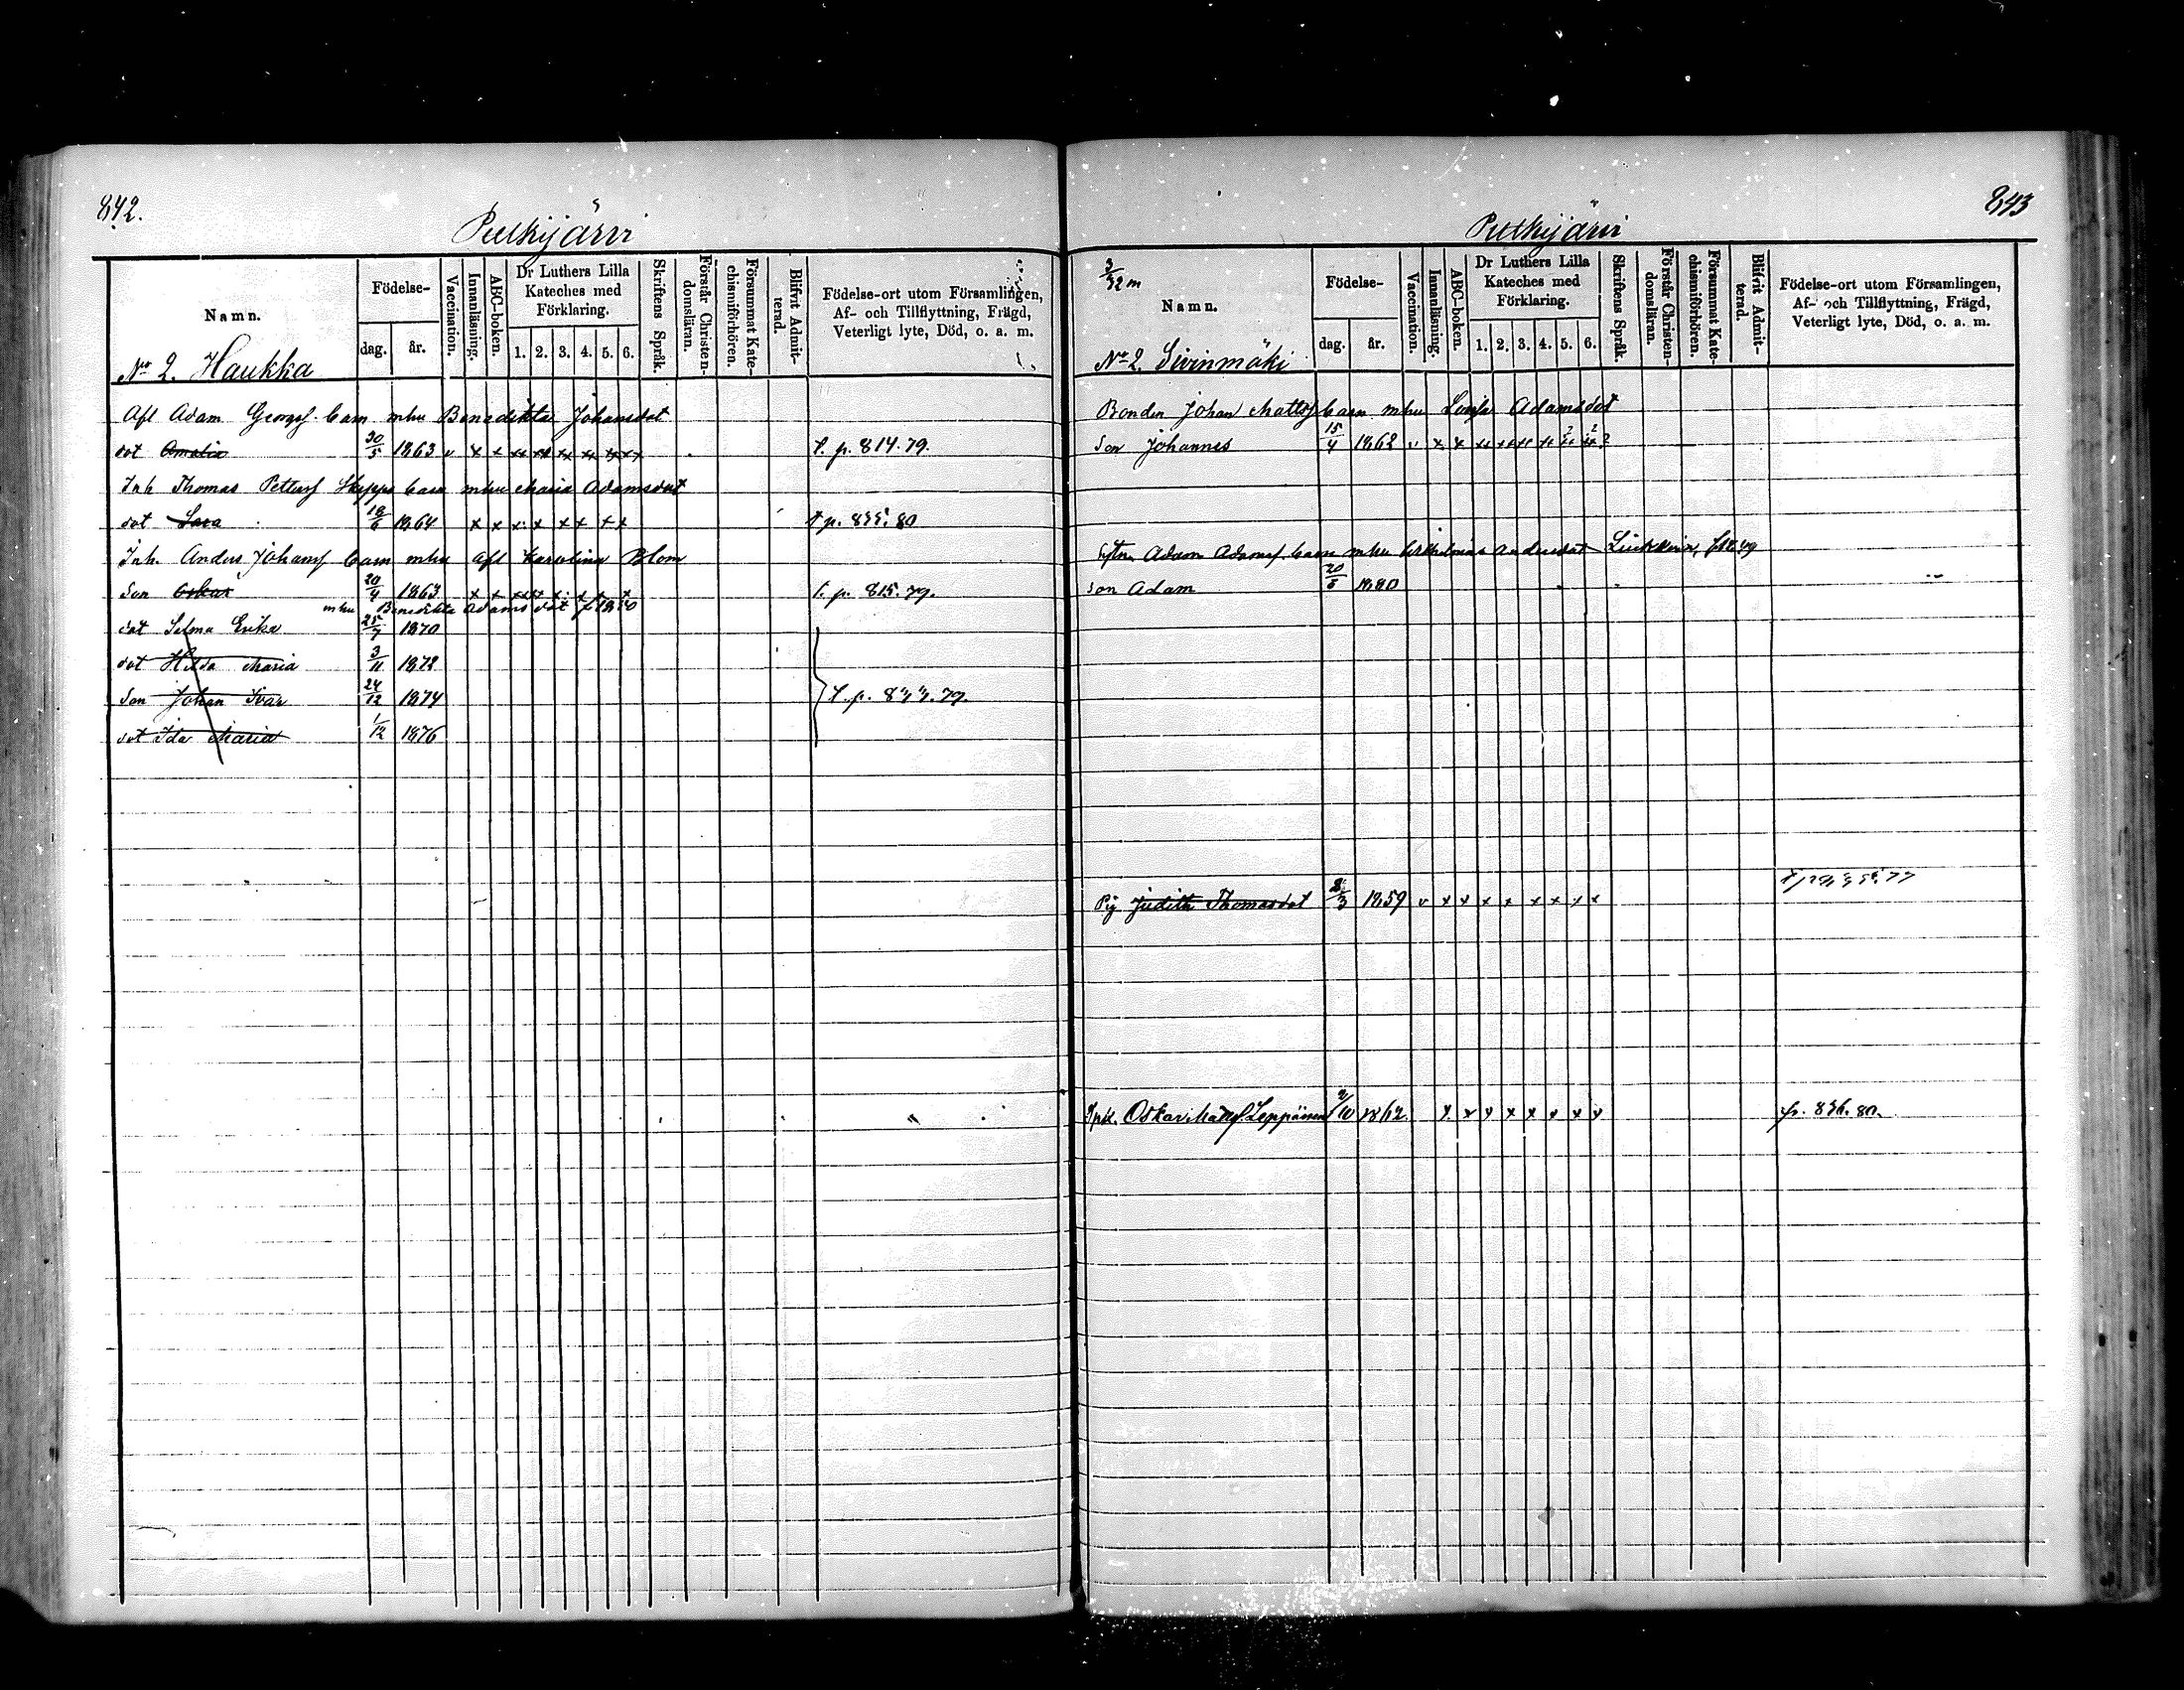 842.
Putkijärvi
Namn.
Födelse-
dag. år.
Vaccination.
Innanläsning.
ABC-boken.
Dr Luthers Lilla
Kateches med
Förklaring.
1. 2. 3. 4. 5. 6.
Skriftens Språk.
Förstår Christen-
domsläran.
Försummat Kate-
chismiförhören.
Blifvit Admit-
terad.
Födelse-ort utom Församlingen,
Af- och Tillflyttning, Frägd,
Veterligt lyte, Död, o. a. m.
No 2. Haukka
Afl Adam Georgsf. barn mhu Benedikta Johansdot
dot Amalia 30/5 1863 v x x xx xx xx xx xxx p. 814.79.
Inh Thomas Pettersf barn mhu Maria Adamsdot
dot Sara 18/6 1864 x x x x x x x x p. 80
Inh. Anders Johansf barn mhu afl Karolina Blom
Son Oskar 20/4 1863 p. 815.79.
mhu Benedikta Adamsdot
dot Selma Erika 25/7 1870
dot Hilda Maria 3/11 1872
Son Johan Ivar 24/12 1874 79.
dot Ida Maria 1/12 1876
843
Putkijärvi
Namn.
Födelse-
dag. år.
Vaccination.
Innanläsning.
ABC-boken.
Dr Luthers Lilla
Kateches med
Förklaring.
1. 2. 3. 4. 5. 6.
Skriftens Språk.
Förstår Christen-
domsläran.
Försummat Kate-
chismiförhören.
Blifvit Admit-
terad.
Födelse-ort utom Församlingen,
Af- och Tillflyttning, Frägd,
Veterligt lyte, Död, o. a. m.
No 2. Sivinmäki
Bonden Johan Mattsf barn mhu Lovisa Adamsdot
Son Johannes 15/4 1862
Adam Adamsf. barn mhu Vilhelmina Andersdot
son Adam 20/5 1880
Pig Judith Thomasdot 1859 v x x x x x x x x 77
Oskar Leppänen 1862. x x x x x x x x p. 836.80.